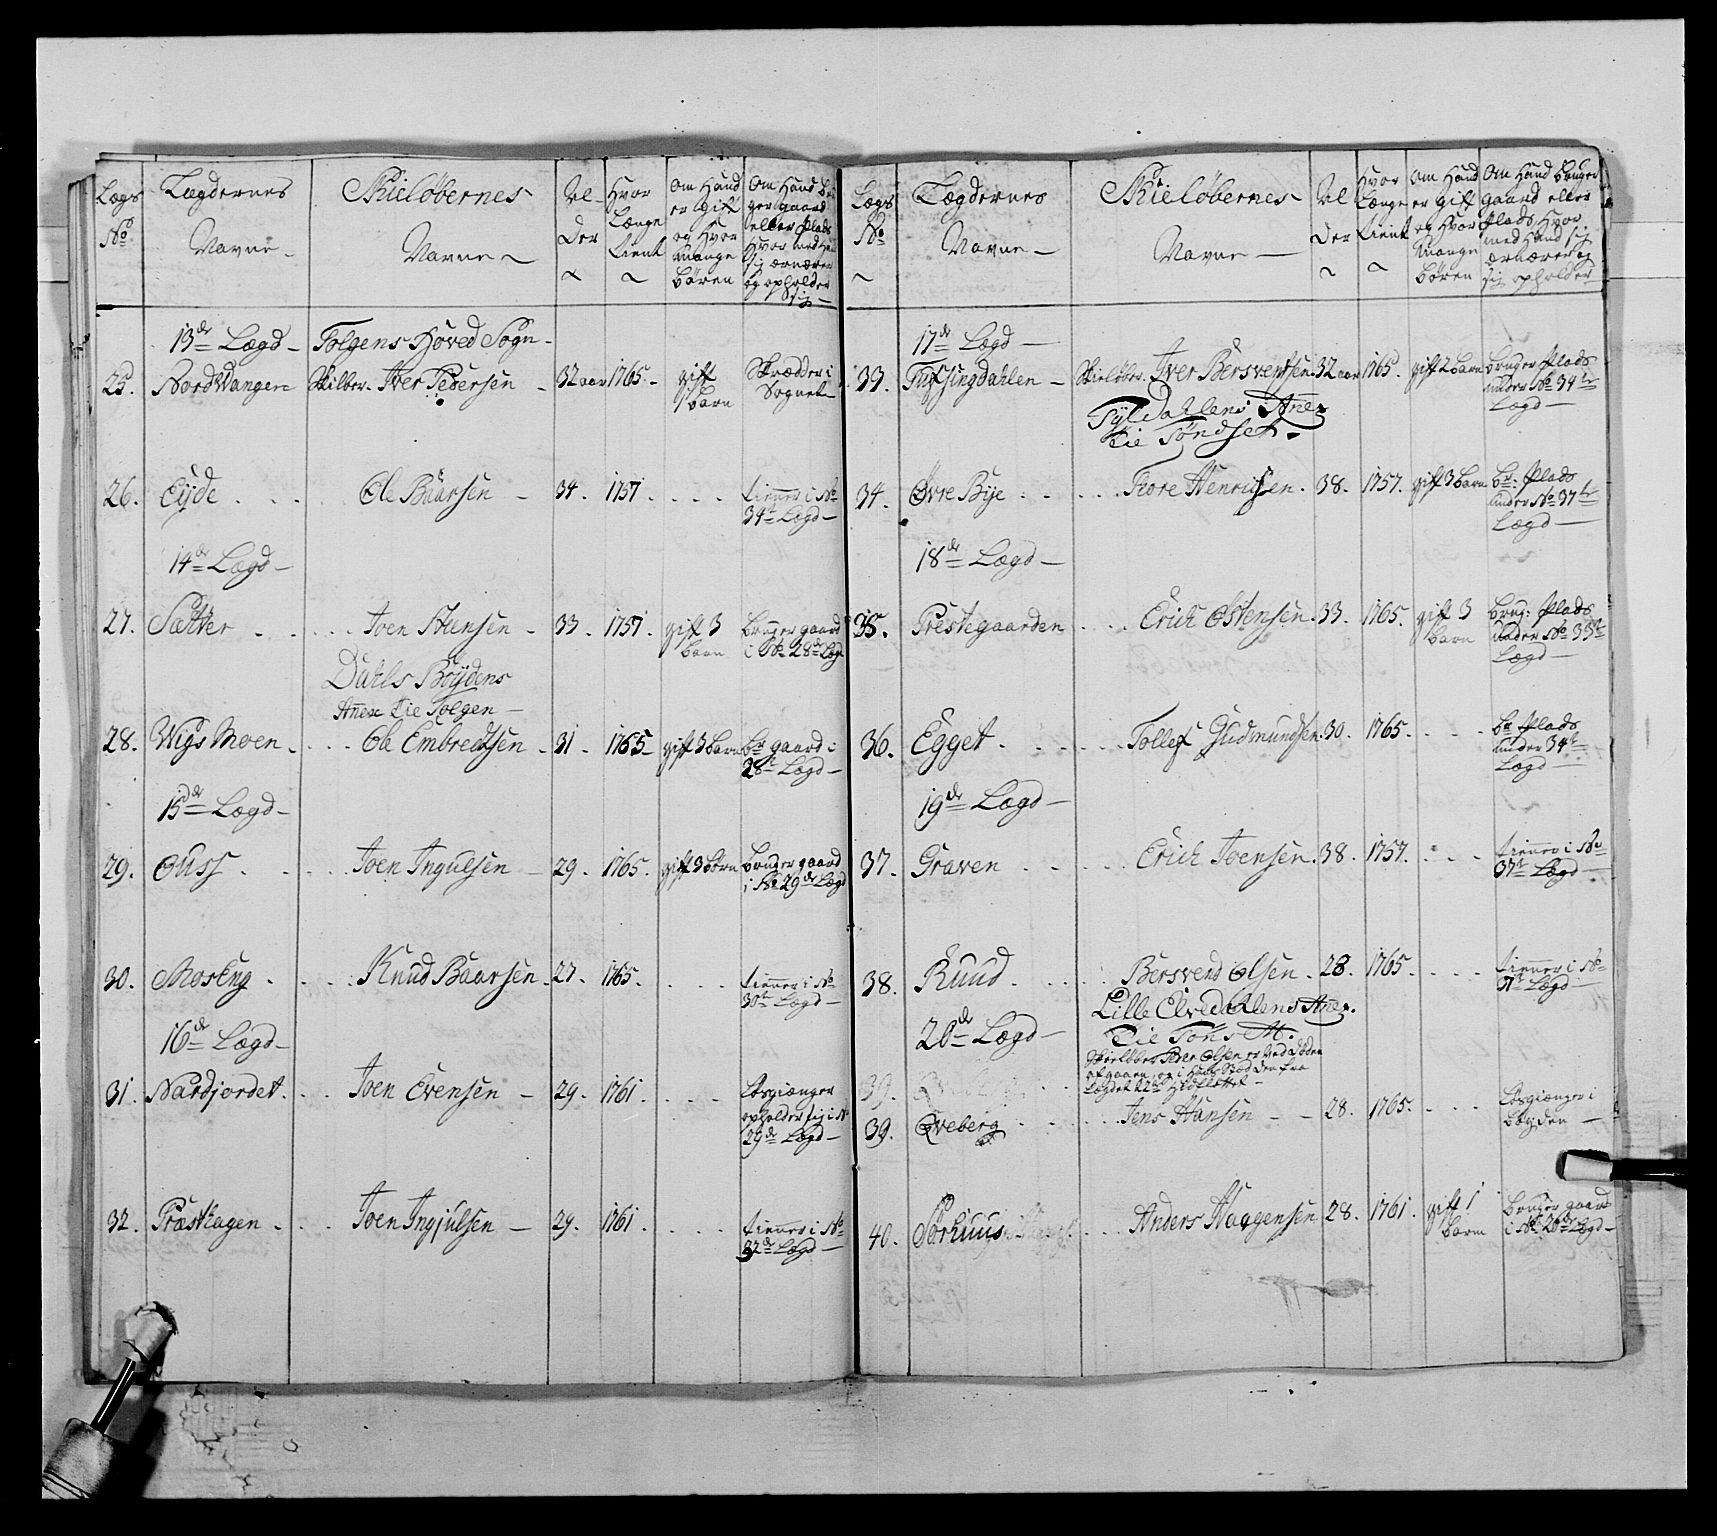 Lægs No
Lægdernes Navne
Skieløbernes Navne
Alder
Hvor Længe tient
Om Hand er gift og Hvor mange børen
Om Hand bruger gaard eller Plads Hvor med Hand sig ærnærer og opholder sig
13de Lægd
Tolgens Hoved Sogn
25. Nordvangen Skilber. Iver Pedersen 32 aar 1765. gift 1 barn Skrædder i Sognet
26. Eyde Ole Baarsen 34. 1757. tienner i No 34t Lægd
14de Lægd
27. Sætter Joen Steensen 33. 1757. gift 3 barn bruger gaard i No 28de Lægd
Dahls Bøydens
Anex tie Tolgen
28. Wigs Moen Ole Embretsen 31. 1765. gift 3 barn br gaard i 28t Lægd
15de Lægd
29. Guss Joen Ingulsen 29. 1765. gift 3 børn bruger gaard i No 29de Lægd
30. MosEng Knud Baarsen 27. 1765. tienner i No 30t Lægd
16de Lægd
31. Nardjordet Joen Evensen 29. 1761. Løsgiænger opholder sig i No 29de Lægd
32. Præsthagen Joen Ingjulsen 29. 1761. tienner i No 32de Lægd
Lægs No
Lægdernes Navne
Skieløbernes Navne
Alder
Hvor Længe tient
Om Hand er gift og Hvor mange børen
Om Hand bruger gaard eller Plads Hvor med Hand sig ærnærer og sig opholder
17de Lægd
33. Tufsingdahlen Skieløber. Iver Bersvensen 32 aar 1765. gift 2 barn bruger Plads under No 34te Lægd
Tyldahlens Anex
tie Tøndset
34. Øvre Bye Tore Henrichsen. 38. 1757. gift 3 barn br: Plads under No 37te Lægd
18de Lægd
35. Prestegaarden Erich Østensen. 33. 1765. gift 3 barn brug: Plads under No 33t Lægd
36. Egget Tollef Gudmundsen. 30. 1765. br Plads under 34t Lægd
19de Lægd
37. Graven Erich Joensen. 38. 1757. tiener i No 37t Lægd
38. Ruud Bersvend Olsen 28. 1765. tienner i No 37t Lægd
Lille Elvedahlens Anex.
20de Lægd
Tie Tøns
39.
Skieløber Peder Olsen er ved Døden
afgaaen, og i Hans Stæd den fra
Lægdet
39. Qveberg Jens Hansen 28. 1765. Løsgiænger i Bøygden
40. Sørhuus Anders Haggensen 28. 1761. gift 1 barn bruger gaard i No 20de Lægd